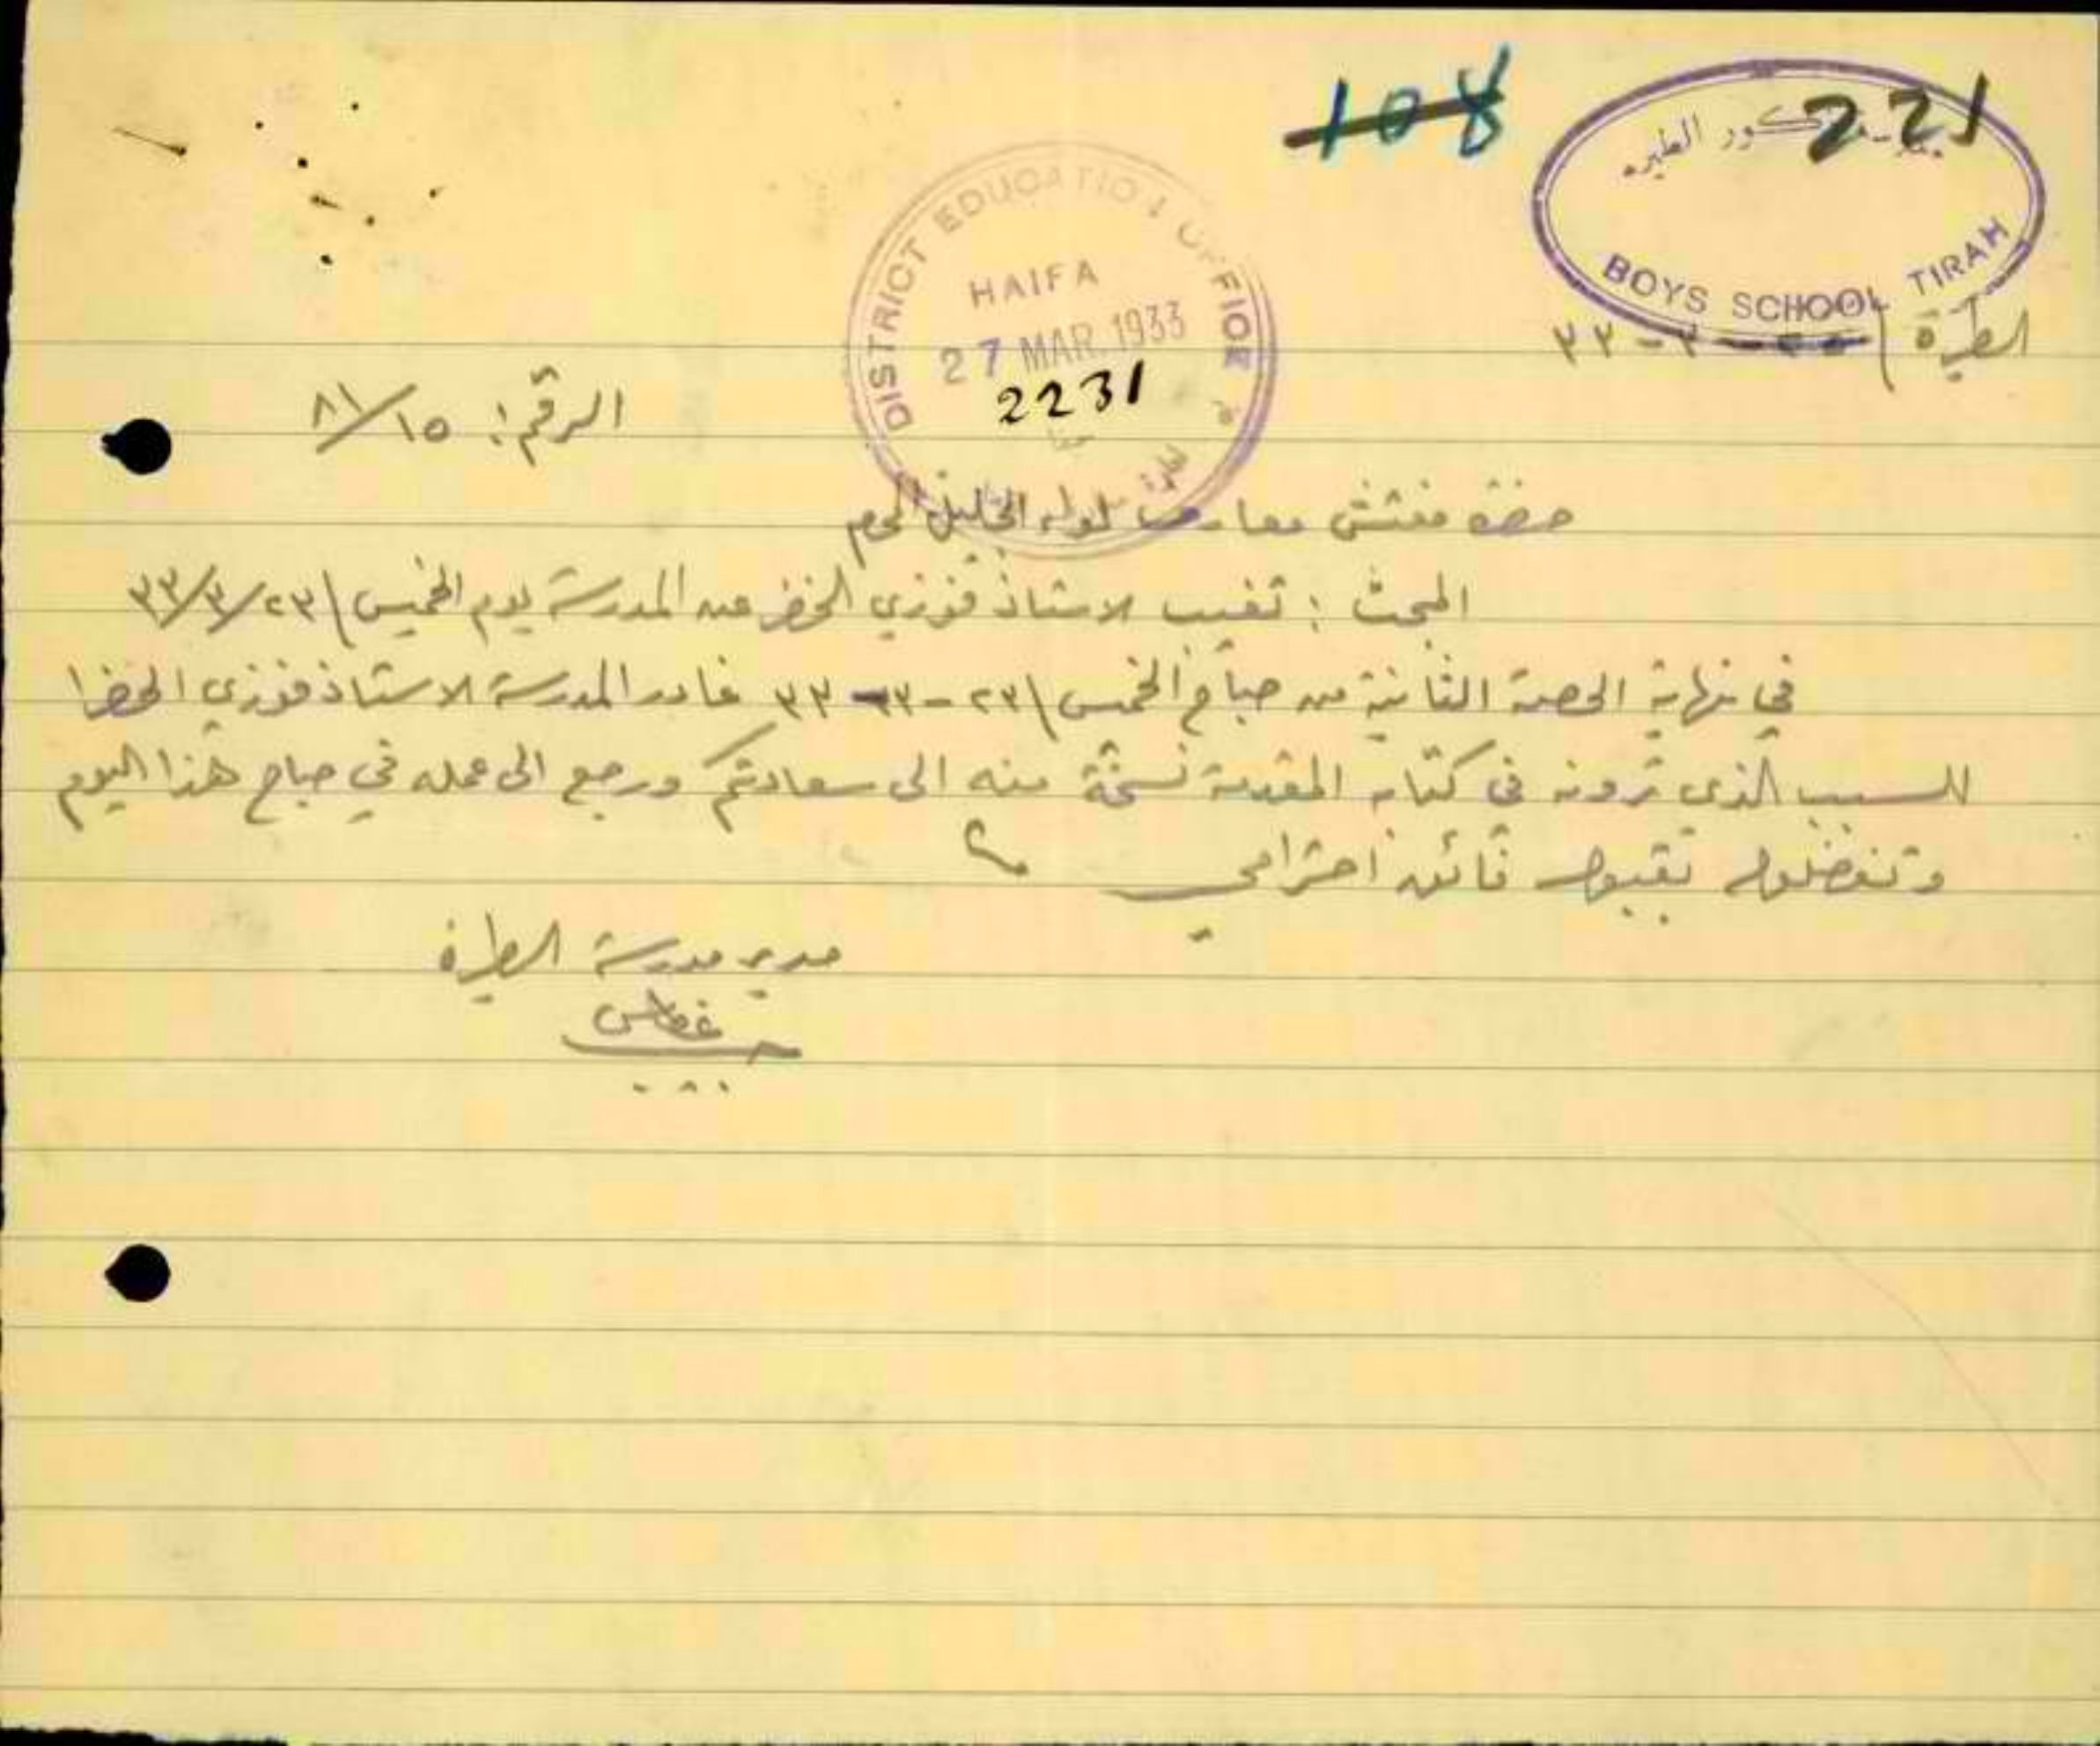 108
221
كور الطيره
BOYS SCHOOL TIRAH
DISTRICT EDUCATION OFFICE
HAIFA
27 MAR. 1933
2231
الطيرة / ٢٥ - ٣ - ٣٣
الرقم: ٨١/١٥
حضرة مفتش معارف لواء الجليل المحترم
المبحث : تغيب الاستاذ فوزي الخضرا عن المدرسة يوم الخميس \ ٢٣/٣/٣٣
في نهاية الحصة الثانية من صباح الخميس \ ٢٣ - ٣ - ٣٣ غادر المدرسة الاستاذ فوزي الخضرا
للسبب الذي ترونه في كتابه المقدمة نسخة منه الى سعادتكم ورجع الى عمله في صباح هذا اليوم
وتفضلوا بقبول فائق احترامي
مدير مدرسة الطيرة